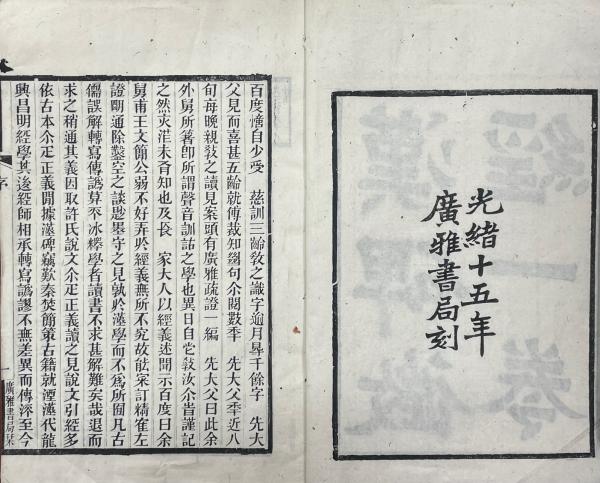 光緒十五年
廣雅書局刻
百度憜自少受　慈訓三齡敎之識字逾月㝵千餘字　先大
父見而喜甚五齡就傅裁知句尒閱數秊　先大父秊近八
旬每晚親敎之讀見案頭有廣雅疏證一編　先大父曰此余
外舅所箸卽所謂聲音訓詁之學也異日自敎汝尒謹記
之然茫未知也及長　家大人以經義述聞示百度曰余
舅甫王文𥳑公弱不好弄於經義無所不究故能宷訂精左
證明通除鑿空之談墨守之見孰於漢學而不爲所囿凡古
儒誤解轉寫傳譌冰釋學者讀書不求甚解難矣哉退而
求之稍通其義因取許氏說文尒疋正義讀之見說文引經多
依古本尒疋正義閒據漢碑竊歎秦焚𥳑策古籍就湮漢代龍
興昌明經學其後經師相承轉寫譌謬不無差異而傳至今
序
一
廣雅書局栞